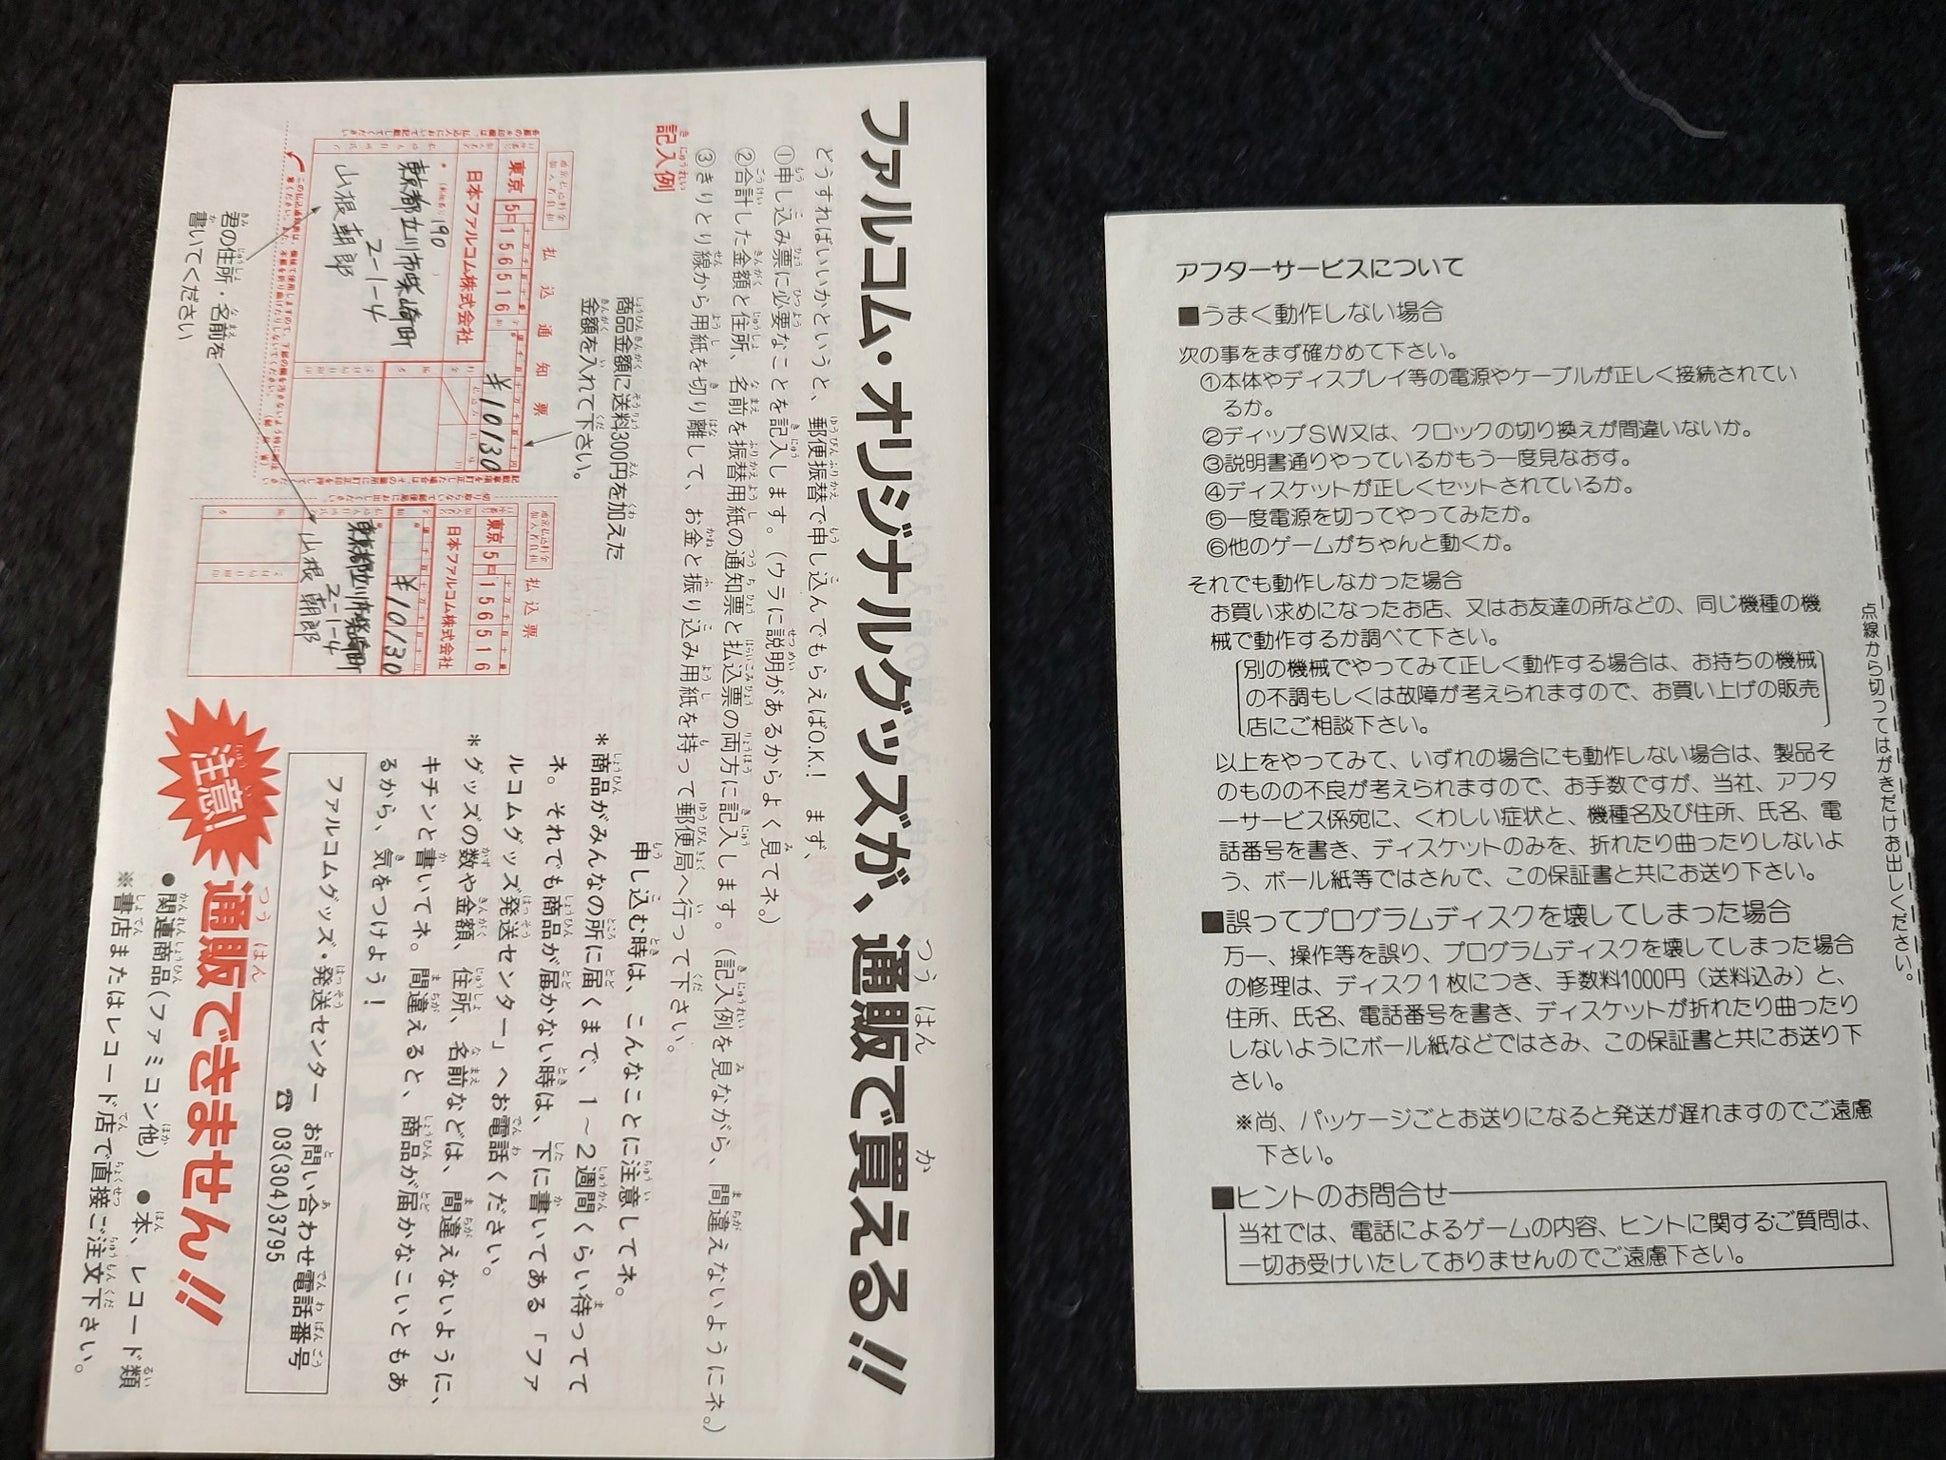 ファルコム・オリジナルグッズが、通販で買える!!
どうすればいいかというと、郵便振替で申し込んでもらえばO.K.! まず、
①申し込み票に必要なことを記入します。(ウラに説明があるからよく見てネ。)
②合計した金額と住所、名前を振替用紙の通知票と払込票の両方に記入します。(記入例を見ながら、間違えないようにネ。)
③きりとり線から用紙を切り離して、お金と振り込み用紙を持って郵便局へ行って下さい。
記入例
商品金額に送料300円を加えた
金額を入れて下さい。
払込通知票
東京 5 156516
日本ファルコム株式会社
¥10130
190
東京都立川市柴崎町
2-1-4
山根 朝郎
払込票
東京 5 156516
日本ファルコム株式会社
¥10130
東京都立川市柴崎町
2-1-4
山根 朝郎
君の住所・名前を
書いてください
申し込む時は、こんなことに注意してネ。
*商品がみんなの所に届くまで、1~2週間くらい待ってて
ネ。それでも商品が届かない時は、下に書いてある「ファ
ルコムグッズ発送センター」へお電話ください。
*グッズの数や金額、住所、名前などは、間違えないように、
キチンと書いてネ。間違えると、商品が届かなこいともあ
るから、気をつけよう!
ファルコムグッズ・発送センター お問い合わせ電話番号
☎ 03(304)3795
注意!
通販できません!!
●関連商品(ファミコン他) ●本、レコード類
※書店またはレコード店で直接ご注文下さい。
アフターサービスについて
■うまく動作しない場合
次の事をまず確かめて下さい。
①本体やディスプレイ等の電源やケーブルが正しく接続されてい
るか。
②ディップSW又は、クロックの切り換えが間違いないか。
③説明書通りやっているかもう一度見なおす。
④ディスケットが正しくセットされているか。
⑤一度電源を切ってやってみたか。
⑥他のゲームがちゃんと動くか。
それでも動作しなかった場合
お買い求めになったお店、又はお友達の所などの、同じ機種の機
械で動作するか調べて下さい。
別の機械でやってみて正しく動作する場合は、お持ちの機械
の不調もしくは故障が考えられますので、お買い上げの販売
店にご相談下さい。
以上をやってみて、いずれの場合にも動作しない場合は、製品そ
のものの不良が考えられますので、お手数ですが、当社、アフタ
ーサービス係宛に、くわしい症状と、機種名及び住所、氏名、電
話番号を書き、ディスケットのみを、折れたり曲ったりしないよ
う、ボール紙等ではさんで、この保証書と共にお送り下さい。
■誤ってプログラムディスクを壊してしまった場合
万一、操作等を誤り、プログラムディスクを壊してしまった場合
の修理は、ディスク1枚につき、手数料1000円(送料込み)と、
住所、氏名、電話番号を書き、ディスケットが折れたり曲ったり
しないようにボール紙などではさみ、この保証書と共にお送り下
さい。
※尚、パッケージごとお送りになると発送が遅れますのでご遠慮
下さい。
■ヒントのお問合せ
当社では、電話によるゲームの内容、ヒントに関するご質問は、
一切お受けいたしておりませんのでご遠慮下さい。
点線から切ってはがきだけお出しください。